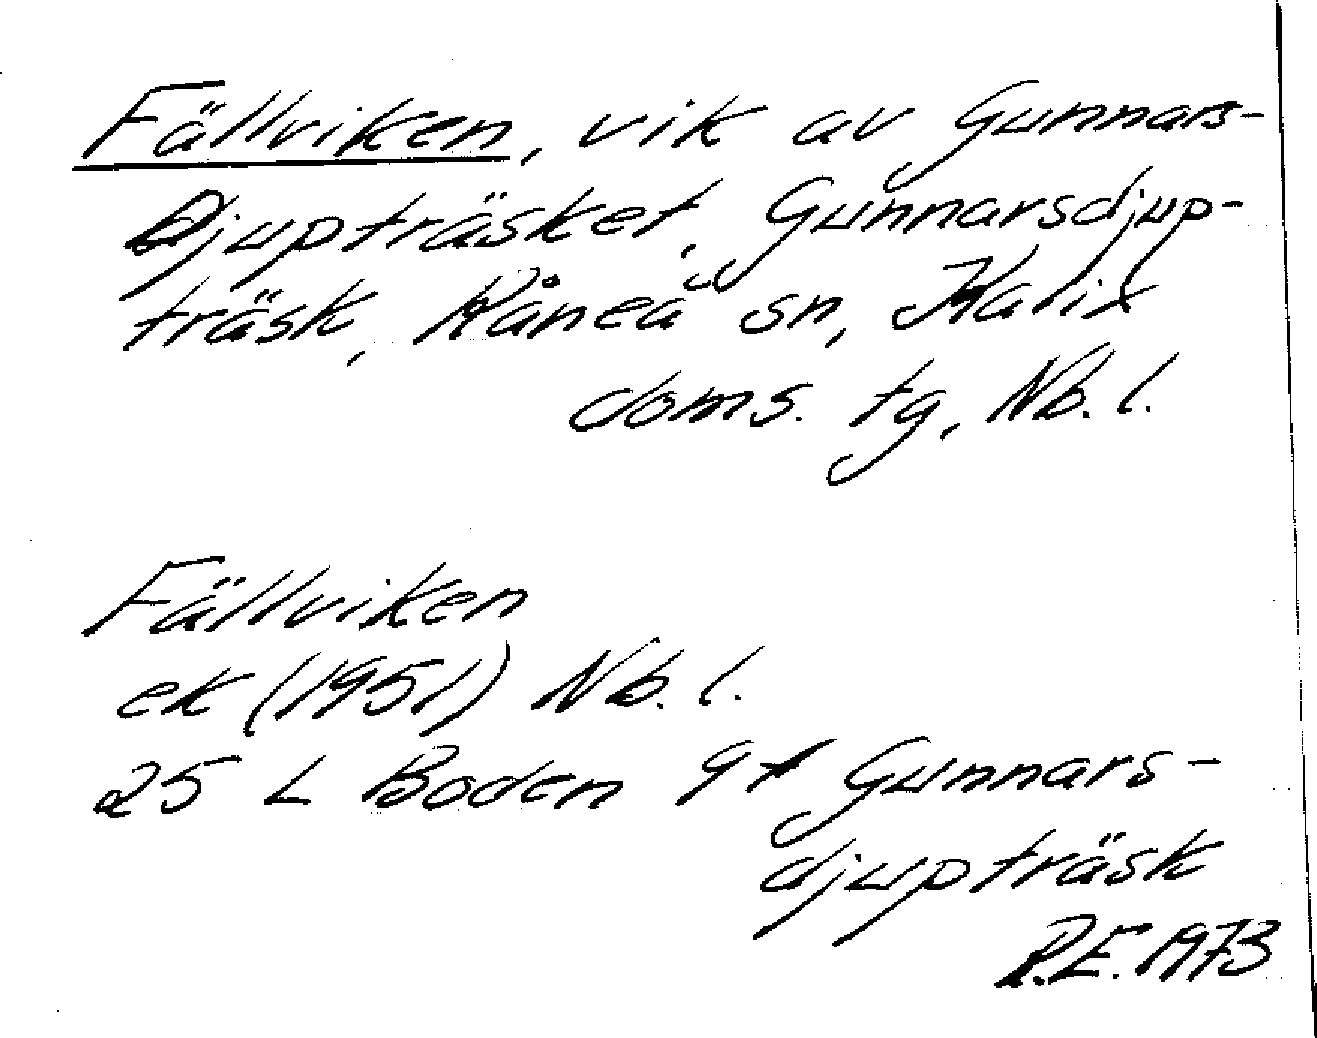 Fällviken, vik av Gunnars-
Djupträsket, Gunnarsdjup-
träsk, Råneå sn, Kalix
doms. tg, Nb. l.
Fällviken
ek (1951) Nb. l.
25 L Boden 9f Gunnars-
djupträsk
R.E. 1973